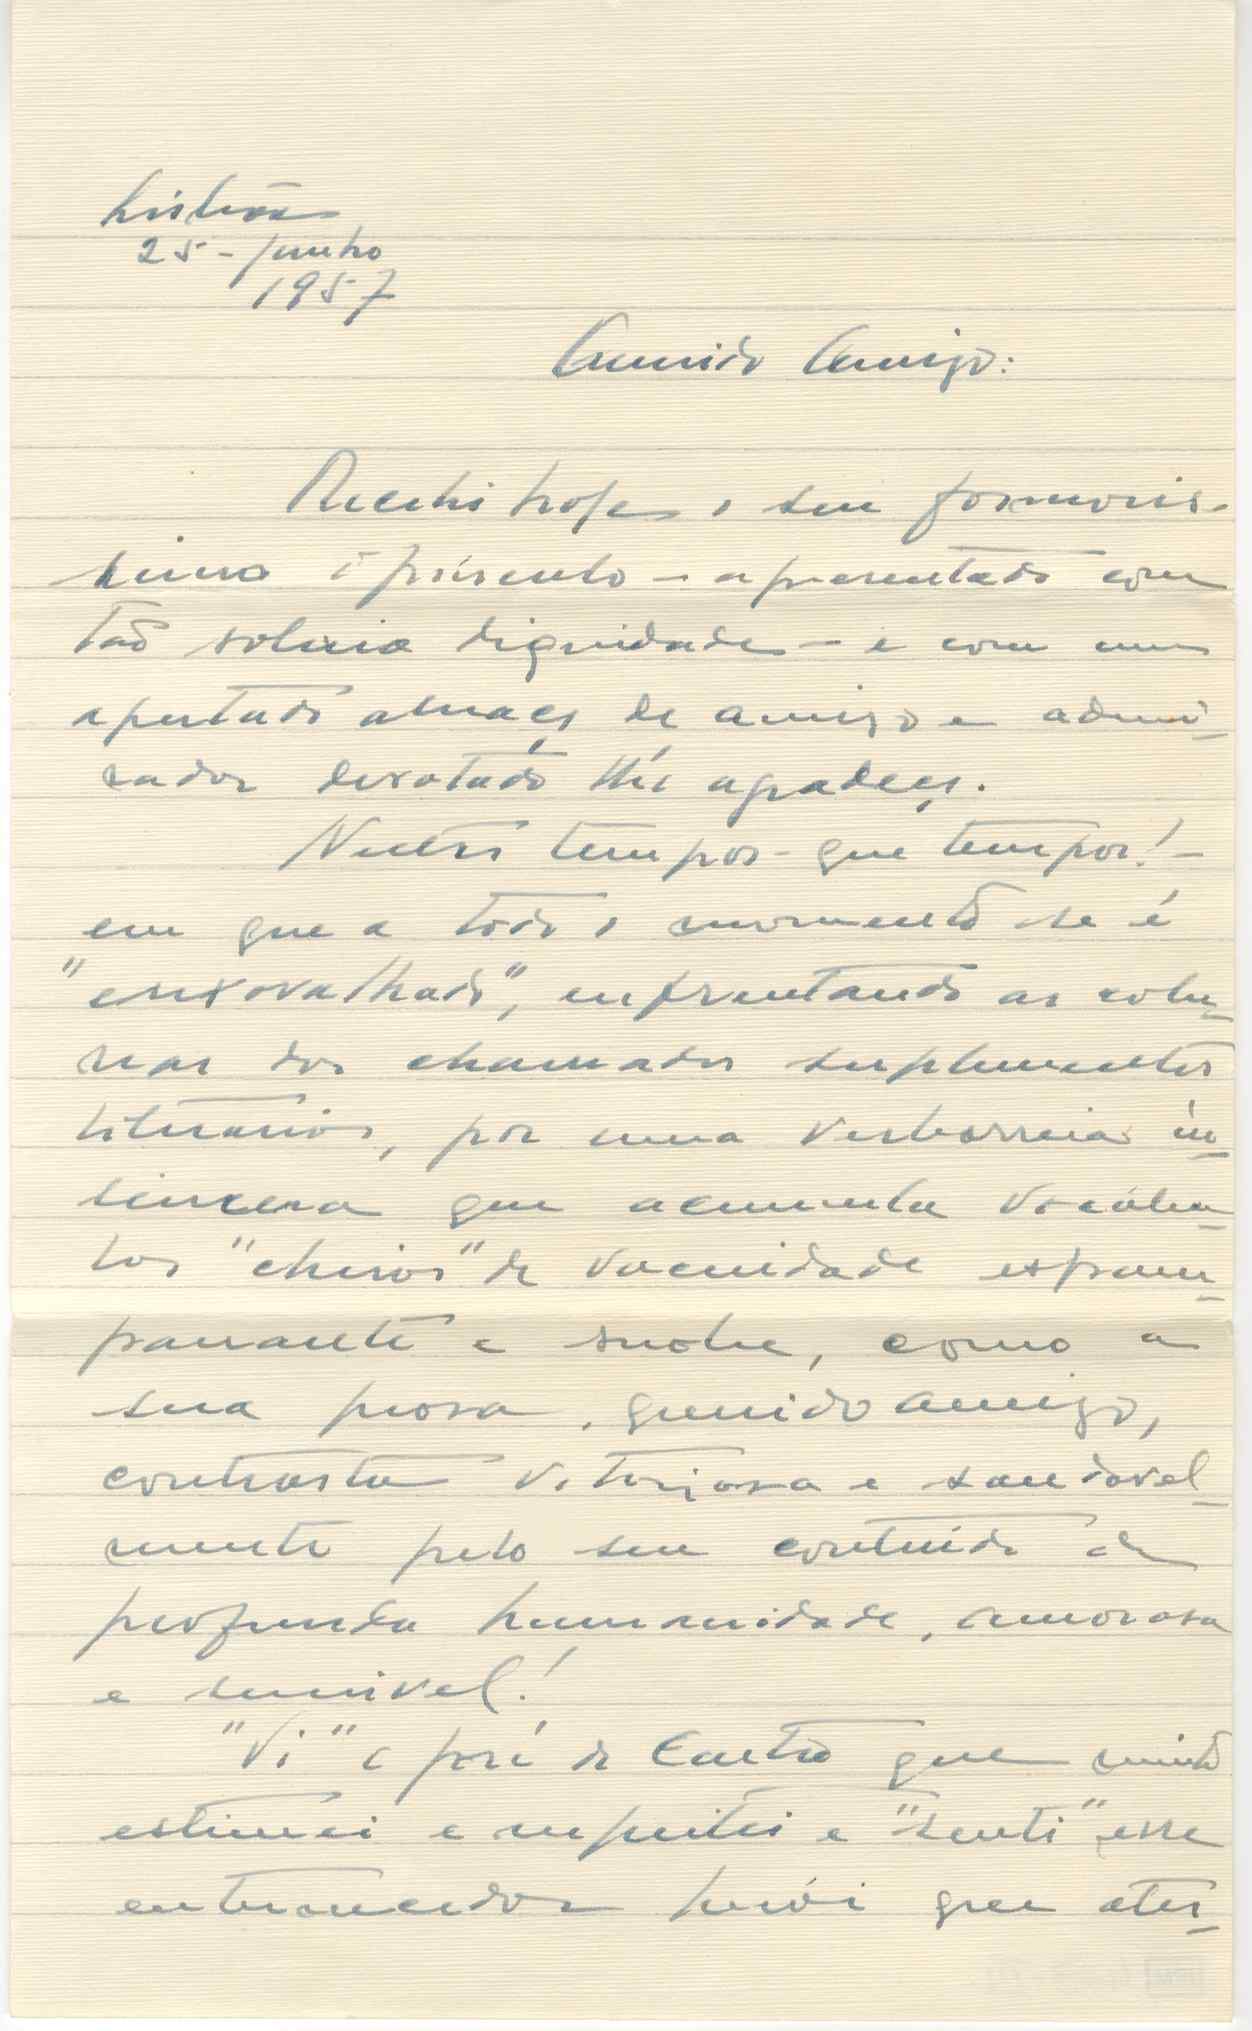 Lisboa
25-junho
1957
Querido Amigo:
Recebi hoje o seu formosís-
simo opúsculo — apresentado com
tão sóbria dignidade — e com um
apertado abraço de amigo e admi-
rador devotado lho agradeço.
Nestes tempos — que tempos! —
em que a todo o momento se é
"enxovalhado", enfrentando as colu-
nas dos chamados suplementos
literários, por uma verborreia in-
sincera que acumula vocábu-
los "cheios" de vacuidade espam-
panante e snobe, como a
sua prosa, querido amigo,
contrasta vitoriosa e saudavel-
mente pelo seu conteúdo de
profunda humanidade, amorosa
e sensível!
"Vi" o José de Castro que muito
estimei e respeitei e "senti" esse
enternecedor herói que